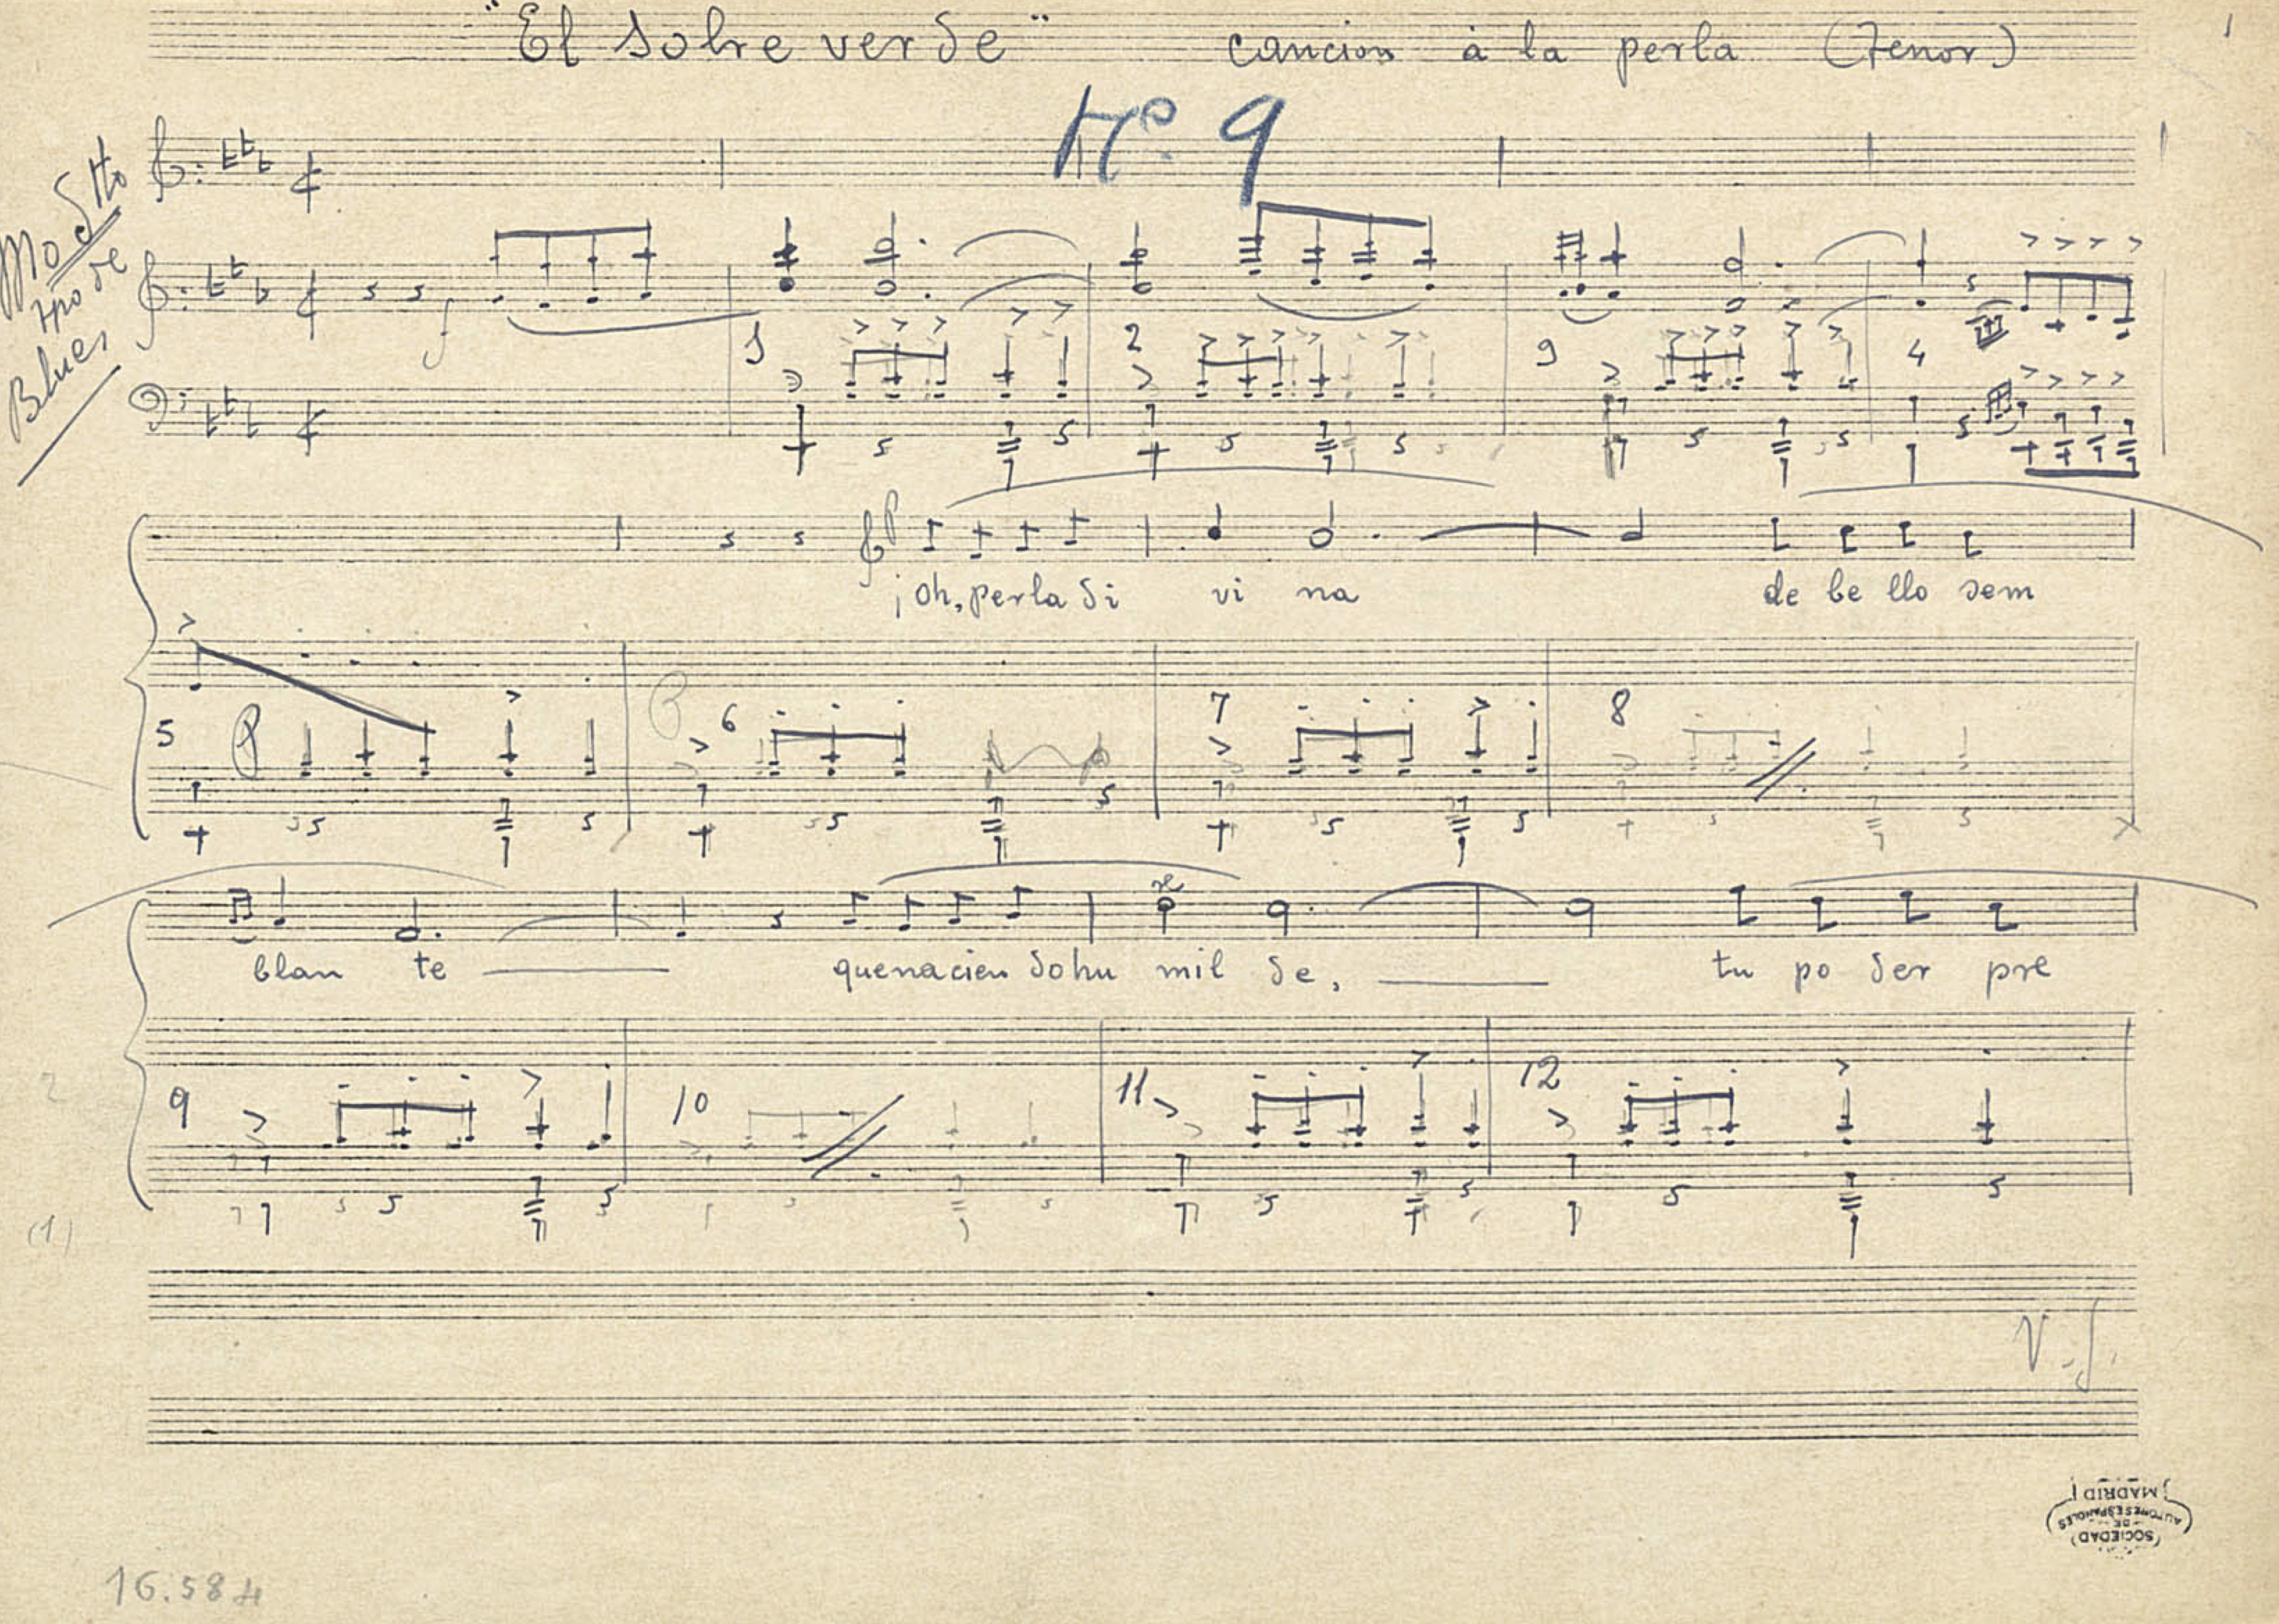 "El sobre verde" cancion à la perla (tenor) 1
Nº 9
Modtto
tpo de
Blues
f
1 2 3 4
¡oh, perla di vi na de be llo sem
5 6 7 8
blan te quenacien dohu mil de, tu po der pre
9 10 11 12
2
(1)
V.S.
SOCIEDAD
DE
AUTORES ESPAÑOLES
MADRID
16.584